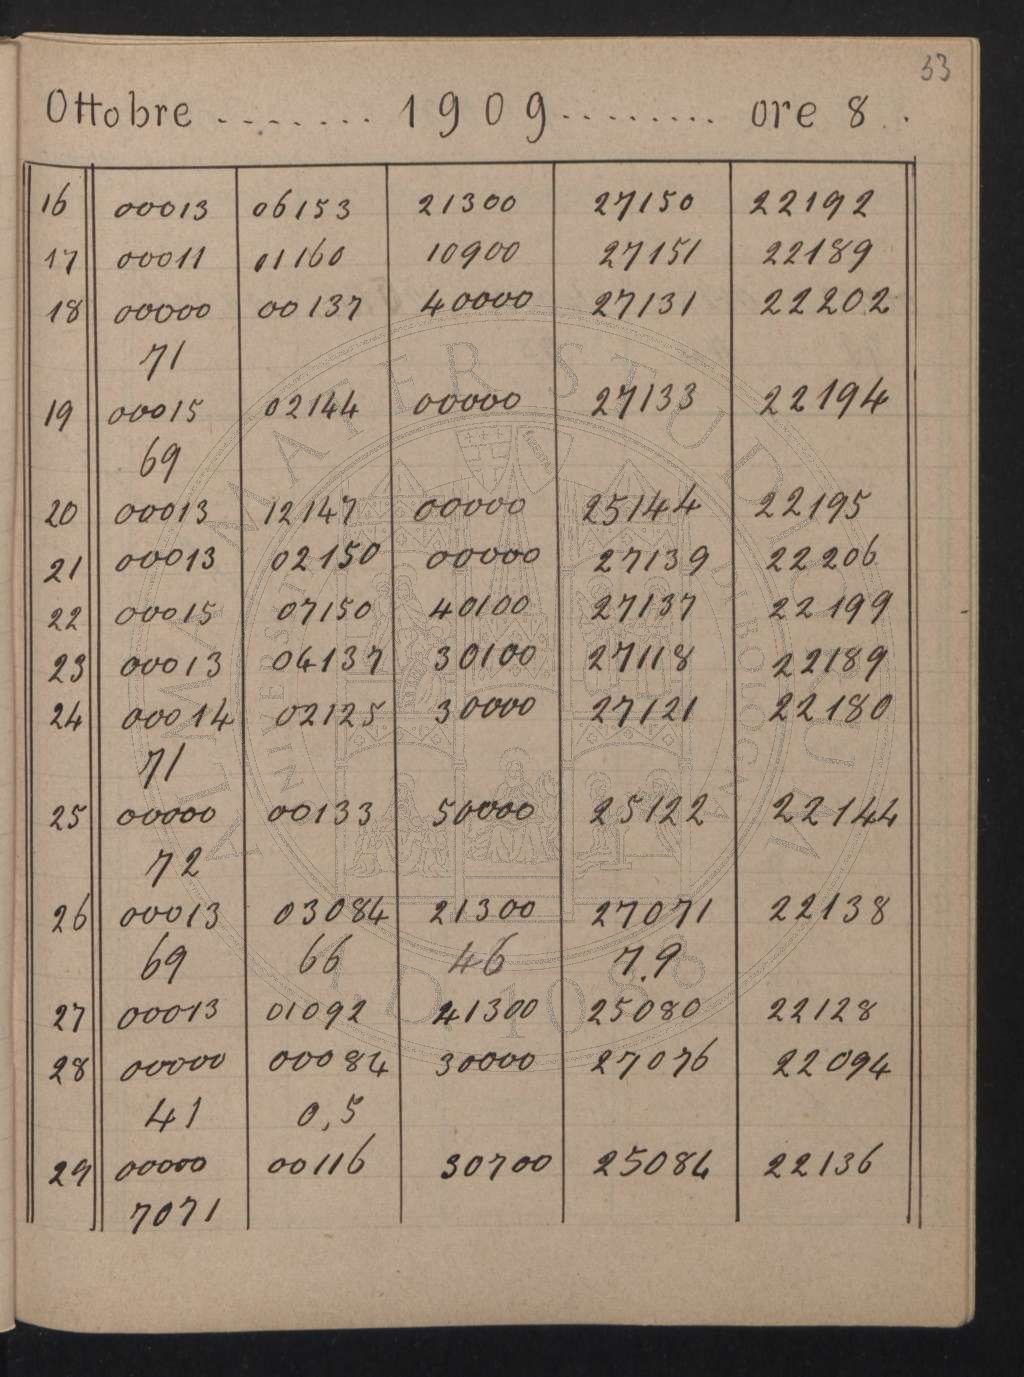 33
Ottobre ........ 1909 ......... ore 8 .
16 00013 06153 21300 27150 22192
17 00011 01160 10900 27151 22189
18 00000 00137 40000 27131 22202
71
19 00015 02144 00000 27133 22194
69
20 00013 12147 00000 25144 22195
21 00013 02150 00000 27139 22206
22 00015 07150 40100 27137 22199
23 00013 04137 30100 27118 22189
24 00014 02125 30000 27121 22180
71
25 00000 00133 50000 25122 22144
72
26 00013 03084 21300 27071 22138
69 66 46 7.9
27 00013 01092 21300 25080 22128
28 00000 00084 30000 27076 22094
41 0,5
29 00000 00116 30700 25084 22136
7071
ALMA MATER STUDIORUM
A.D. 1088